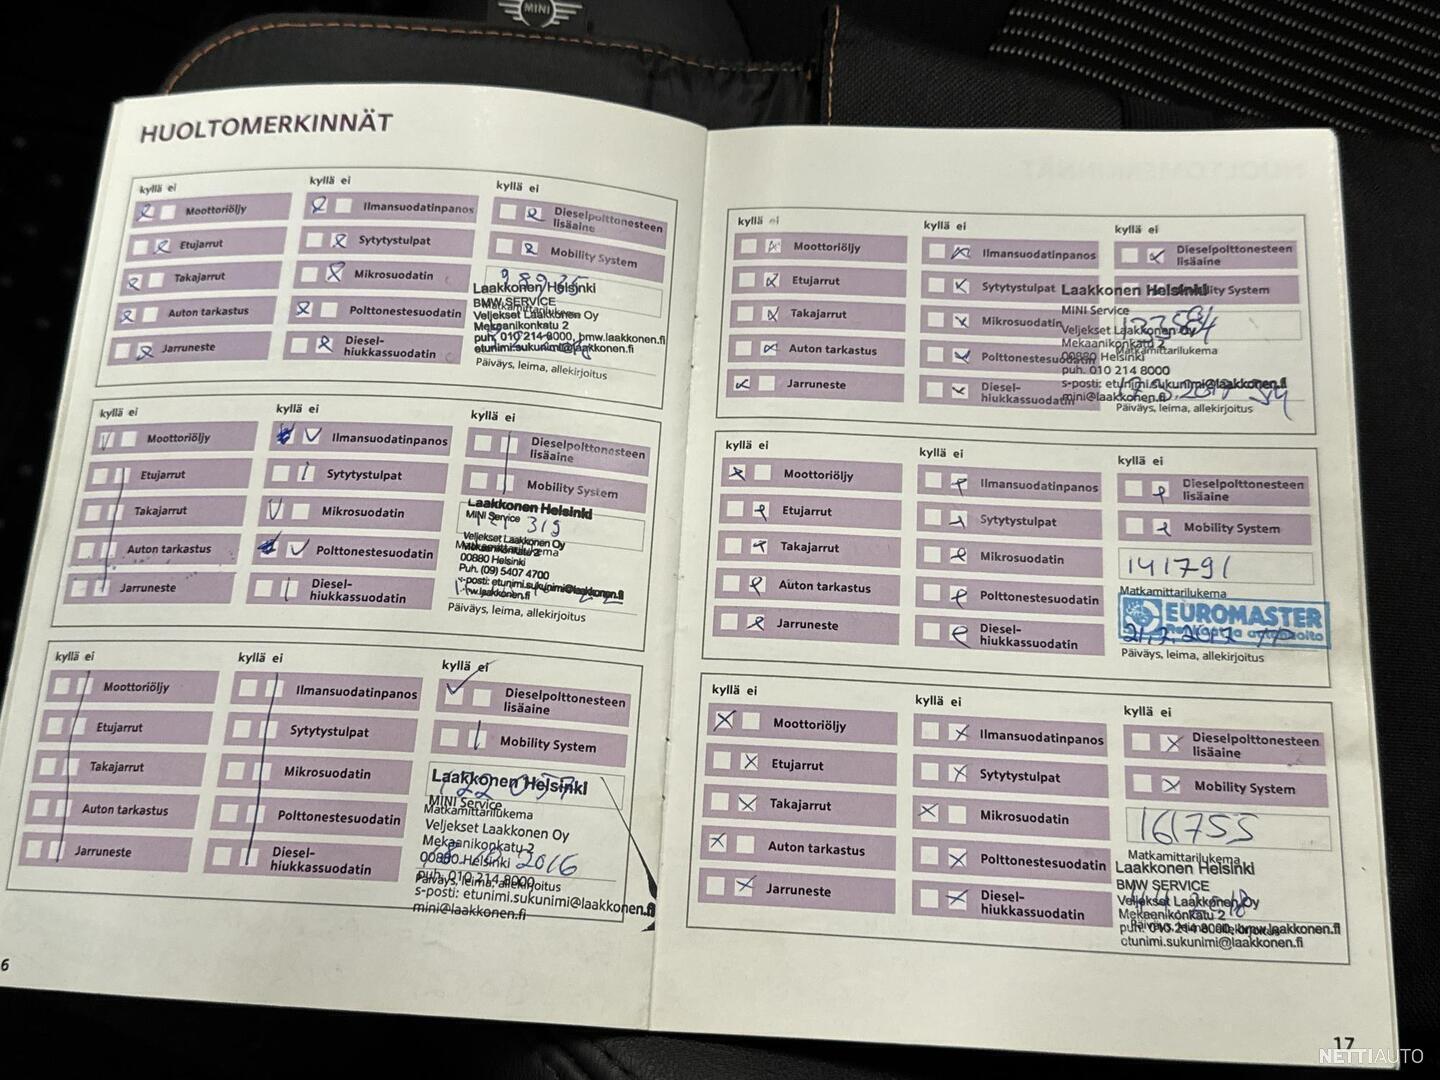 MINI
HUOLTOMERKINNÄT
kyllä ei
Moottoriöljy
Etujarrut
Takajarrut
Auton tarkastus
Jarruneste
kyllä ei
Ilmansuodatinpanos
Sytytystulpat
Mikrosuodatin
Polttonestesuodatin
Diesel-
hiukkassuodatin
kyllä ei
Dieselpolttonesteen
lisäaine
Mobility System
Laakkonen Helsinki
BMW SERVICE
Matkamittarilukema
Veljekset Laakkonen Oy
Mekaanikonkatu 2
puh. 010 214 8000, bmw.laakkonen.fi
etunimi.sukunimi@laakkonen.fi
Päiväys, leima, allekirjoitus
kyllä ei
Moottoriöljy
Etujarrut
Takajarrut
Auton tarkastus
Jarruneste
kyllä ei
Ilmansuodatinpanos
Sytytystulpat
Mikrosuodatin
Polttonestesuodatin
Diesel-
hiukkassuodatin
kyllä ei
Dieselpolttonesteen
lisäaine
Mobility System
Laakkonen Helsinki
MINI Service
319
Veljekset Laakkonen Oy
Matkamittarilukema
Mekaanikonkatu 2
00880 Helsinki
Puh. (09) 5407 4700
s-posti: etunimi.sukunimi@laakkonen.fi
Päiväys, leima, allekirjoitus
kyllä ei
Moottoriöljy
Etujarrut
Takajarrut
Auton tarkastus
Jarruneste
kyllä ei
Ilmansuodatinpanos
Sytytystulpat
Mikrosuodatin
Polttonestesuodatin
Diesel-
hiukkassuodatin
kyllä ei
Dieselpolttonesteen
lisäaine
Mobility System
Laakkonen Helsinki
MINI Service
Matkamittarilukema
Veljekset Laakkonen Oy
Mekaanikonkatu 2
00880 Helsinki
2016
puh. 010 214 8000
Päiväys, leima, allekirjoitus
s-posti: etunimi.sukunimi@laakkonen.fi
mini@laakkonen.fi
6
kyllä ei
Moottoriöljy
Etujarrut
Takajarrut
Auton tarkastus
Jarruneste
kyllä ei
Ilmansuodatinpanos
Sytytystulpat
Mikrosuodatin
Polttonestesuodatin
Diesel-
hiukkassuodatin
kyllä ei
Dieselpolttonesteen
lisäaine
Mobility System
Laakkonen Helsinki
MINI Service
Veljekset Laakkonen Oy
Mekaanikonkatu 2
Matkamittarilukema
00880 Helsinki
puh. 010 214 8000
s-posti: etunimi.sukunimi@laakkonen.fi
mini@laakkonen.fi
Päiväys, leima, allekirjoitus
kyllä ei
Moottoriöljy
Etujarrut
Takajarrut
Auton tarkastus
Jarruneste
kyllä ei
Ilmansuodatinpanos
Sytytystulpat
Mikrosuodatin
Polttonestesuodatin
Diesel-
hiukkassuodatin
kyllä ei
Dieselpolttonesteen
lisäaine
Mobility System
141791
Matkamittarilukema
EUROMASTER
Päiväys, leima, allekirjoitus
kyllä ei
Moottoriöljy
Etujarrut
Takajarrut
Auton tarkastus
Jarruneste
kyllä ei
Ilmansuodatinpanos
Sytytystulpat
Mikrosuodatin
Polttonestesuodatin
Diesel-
hiukkassuodatin
kyllä ei
Dieselpolttonesteen
lisäaine
Mobility System
161755
Matkamittarilukema
Laakkonen Helsinki
BMW SERVICE
Veljekset Laakkonen Oy
Mekaanikonkatu 2
puh. 010 214 8000, bmw.laakkonen.fi
etunimi.sukunimi@laakkonen.fi
17
NETTIAUTO